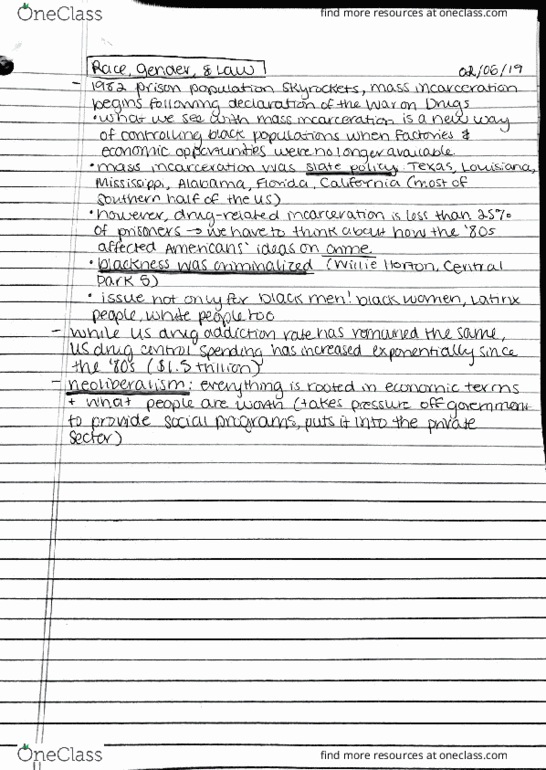 OneClass
find more resources at oneclass.com
Race, Gender, & Law
02/06/19
- 1982 prison population skyrockets, mass incarceration
begins following declaration of the War on Drugs
• what we see with mass incarceration is a new way
of controlling black populations when factories &
economic opportunities were no longer available
• mass incarceration was state policy Texas, Louisiana,
Mississippi, Alabama, Florida, California (most of
southern half of the US)
• however, drug-related incarceration is less than 25%
of prisoners → we have to think about how the '80s
affected Americans' ideas on crime.
• blackness was criminalized (Willie Horton, Central
Park 5)
• issue not only for black men! black women, Latinx
people, white people too
- while US drug addiction rate has remained the same,
US drug control spending has increased exponentially since
the '80s ($1.5 trillion)
- neoliberalism: everything is rooted in economic terms
+ what people are worth (takes pressure off government
to provide social programs, puts it into the private
sector)
OneClass
find more resources at oneclass.com